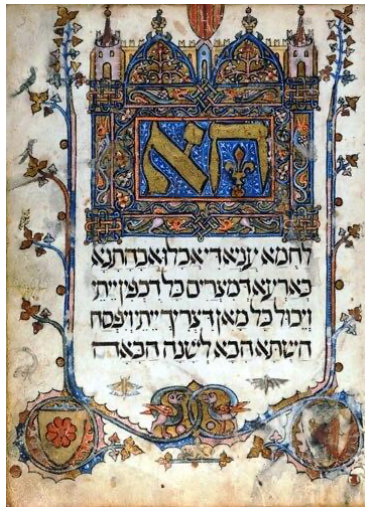 הא
לחמא עניא די אכלו אבהתנא
בארעא דמצרים כל דכפין ייתי
וייכול כל מאן דצריך ייתי ויפסח
השתא הכא לשנה הבאה